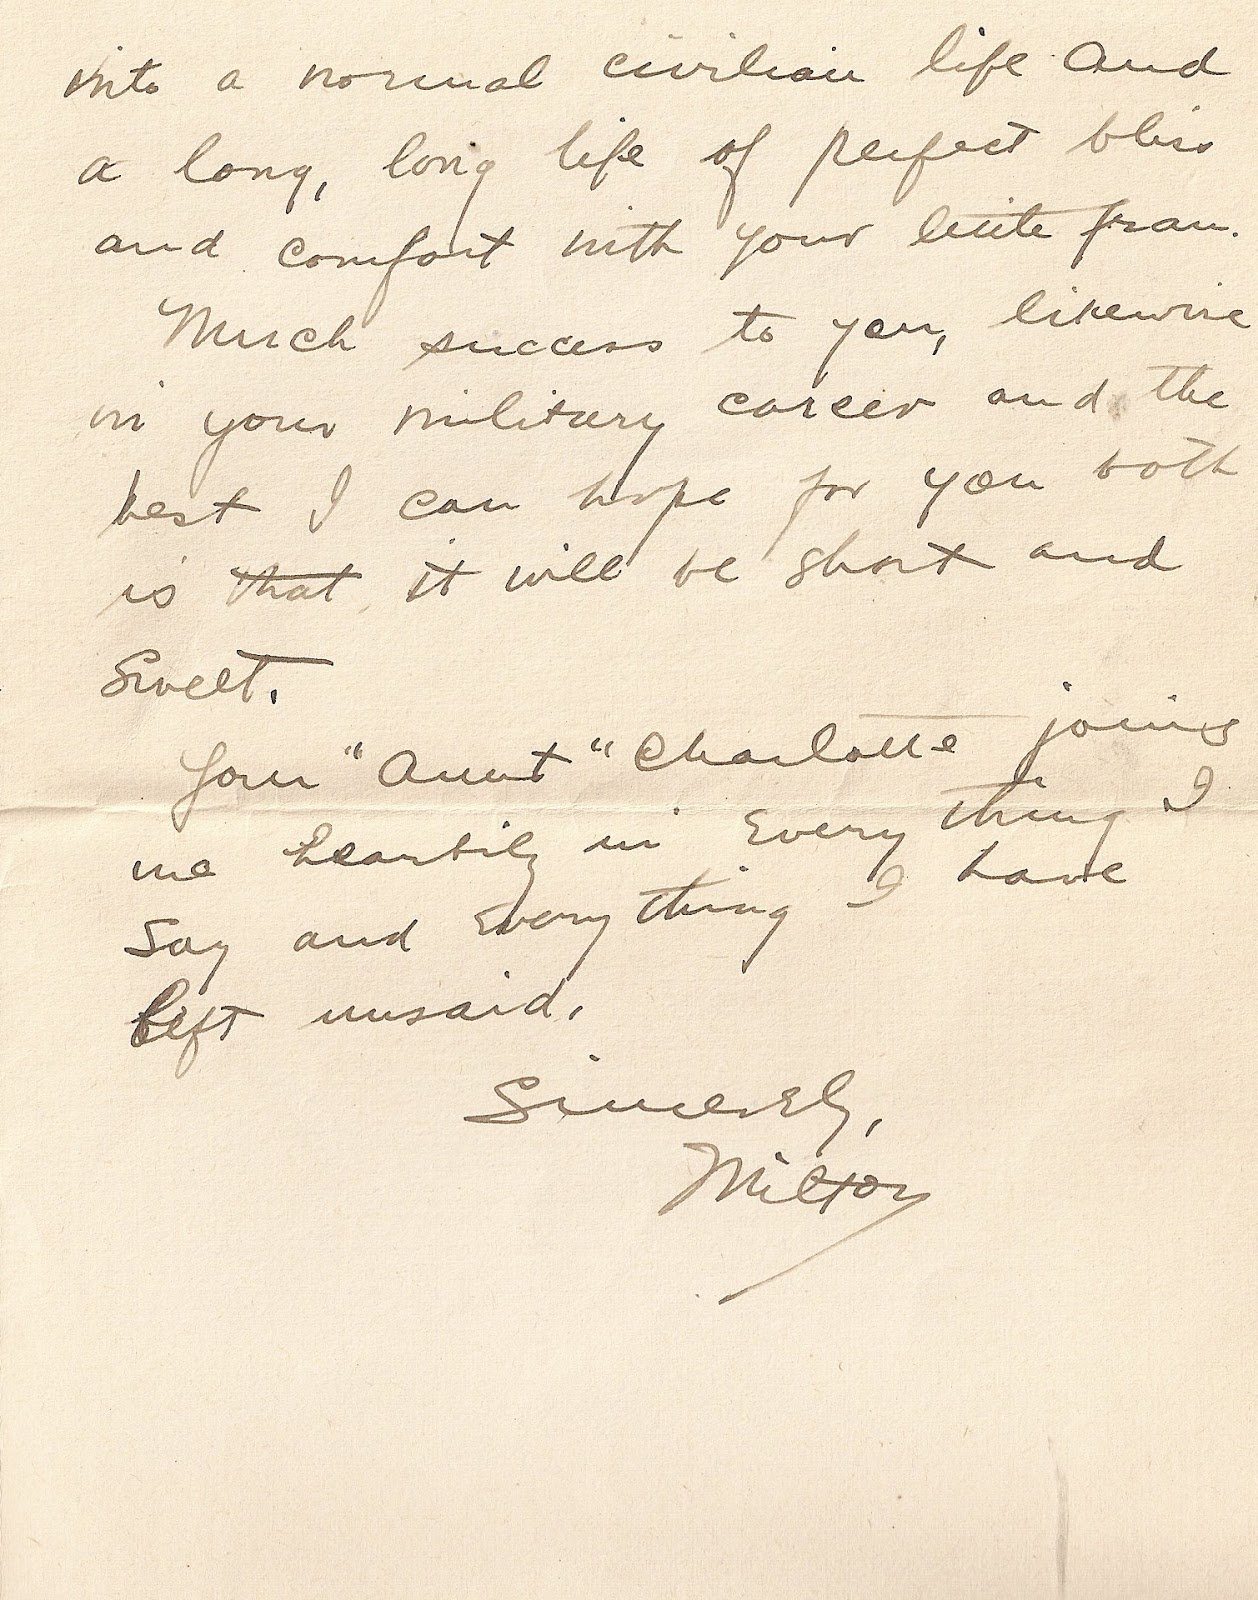 into a normal civilian life and
a long, long life of perfect bliss
and comfort with your little frau.
Much success to you, likewise
in your military career and the
best I can hope for you both
is that it will be short and
sweet.
Your "Aunt" Charlotte joins
me heartily in everything I
say and everything I have
left unsaid.
Sincerely,
Milton